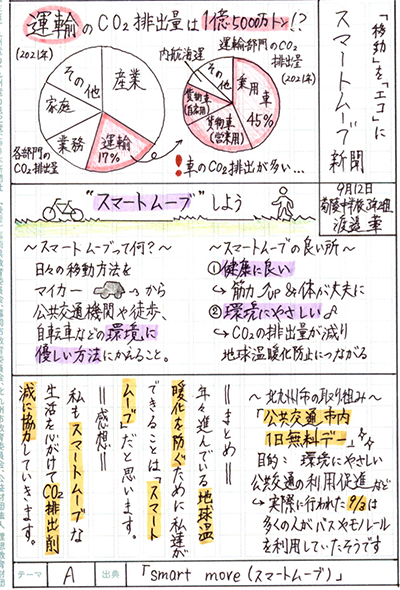 「移動」を「エコ」に
スマートムーブ
新聞
9月12日
運輸のCO₂排出量は1億5000万トン!?
(2021年)
産業
運輸
17%
業務
家庭
その他
各部門の
CO₂排出量
運輸部門のCO₂
排出量
(2021年)
内航海運
その他
乗用車
45%
貨物車
(自家用)
貨物車
(営業用)
!車のCO₂排出が多い…
"スマートムーブ"しよう
～スマートムーブって何?～
日々の移動方法を
マイカー から
公共交通機関や徒歩、
自転車などの環境に
優しい方法にかえること。
～スマートムーブの良い所～
①健康に良い
↪筋力up&体が丈夫に
②環境にやさしい
↪CO₂の排出量が減り
地球温暖化防止につながる
～北九州市の取り組み～
「公共交通市内
1日無料デー」など
目的：環境にやさしい
公共交通の利用促進など
↪実際に行われた9/3は
多くの人がバスやモノレール
を利用していたそうです
＝まとめ＝
年々進んでいる地球温
暖化を防ぐために私達が
できることは「スマート
ムーブ」だと思います。
＝感想＝
私もスマートムーブな
生活を心がけてCO₂排出削
減に協力していきます。
テーマ A 出典 「smart move(スマートムーブ)」